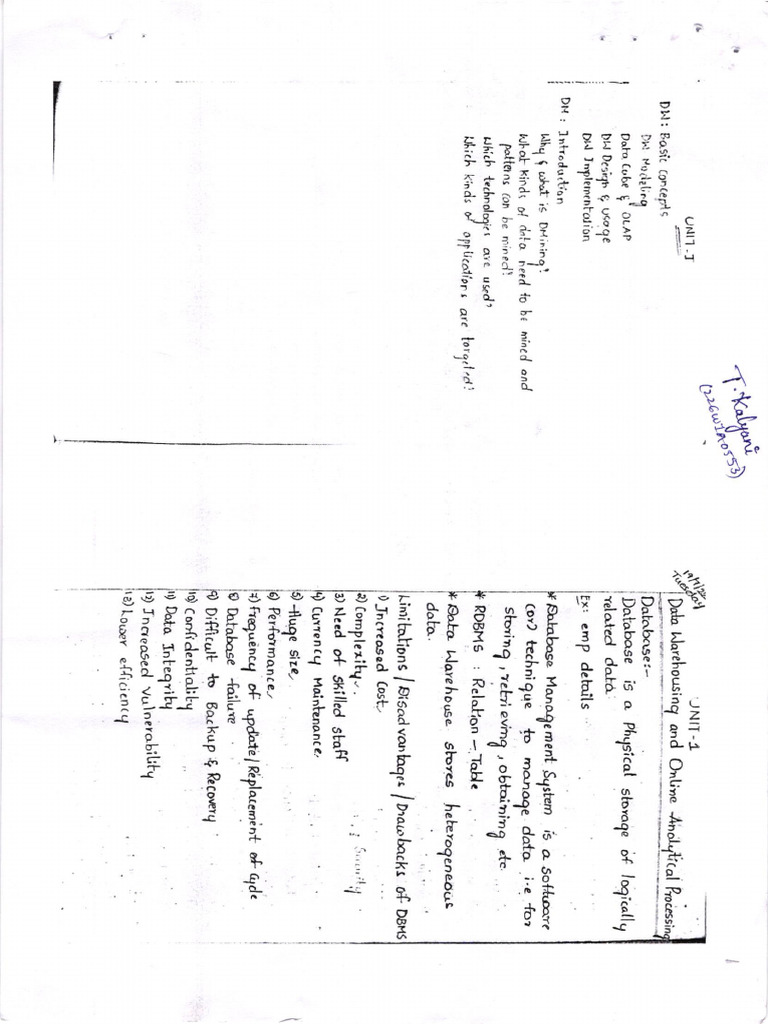 UNIT-I
DW: Basic concepts
DW Modeling
Data Cube & OLAP
DW Design & usage
DW Implementation
DM: Introduction
Why & what is DMining?
What kinds of data need to be mined and
patterns can be mined?
Which technologies are used?
Which kinds of applications are targeted?
T. Kalyani
(226W1A0553)
Tuesday
UNIT-1
Data Warehousing and Online Analytical Processing
Database:-
Database is a Physical storage of logically
related data.
Ex: emp details
* Database Management System is a software
(or) technique to manage data i.e for
storing, retrieving, obtaining etc
* RDBMS : Relation - Table
* Data Warehouse stores heterogeneous
data.
Limitations / Disadvantages / Drawbacks of DBMS
1) Increased Cost
2) Complexity. Security
3) Need of skilled staff
4) Currency Maintenance
5) Huge size
6) Performance
7) Frequency of update/Replacement of Cycle
8) Database failure
9) Difficult to Backup & Recovery
10) Confidentiality
11) Data Integrity
12) Increased Vulnerability
13) Lower efficiency